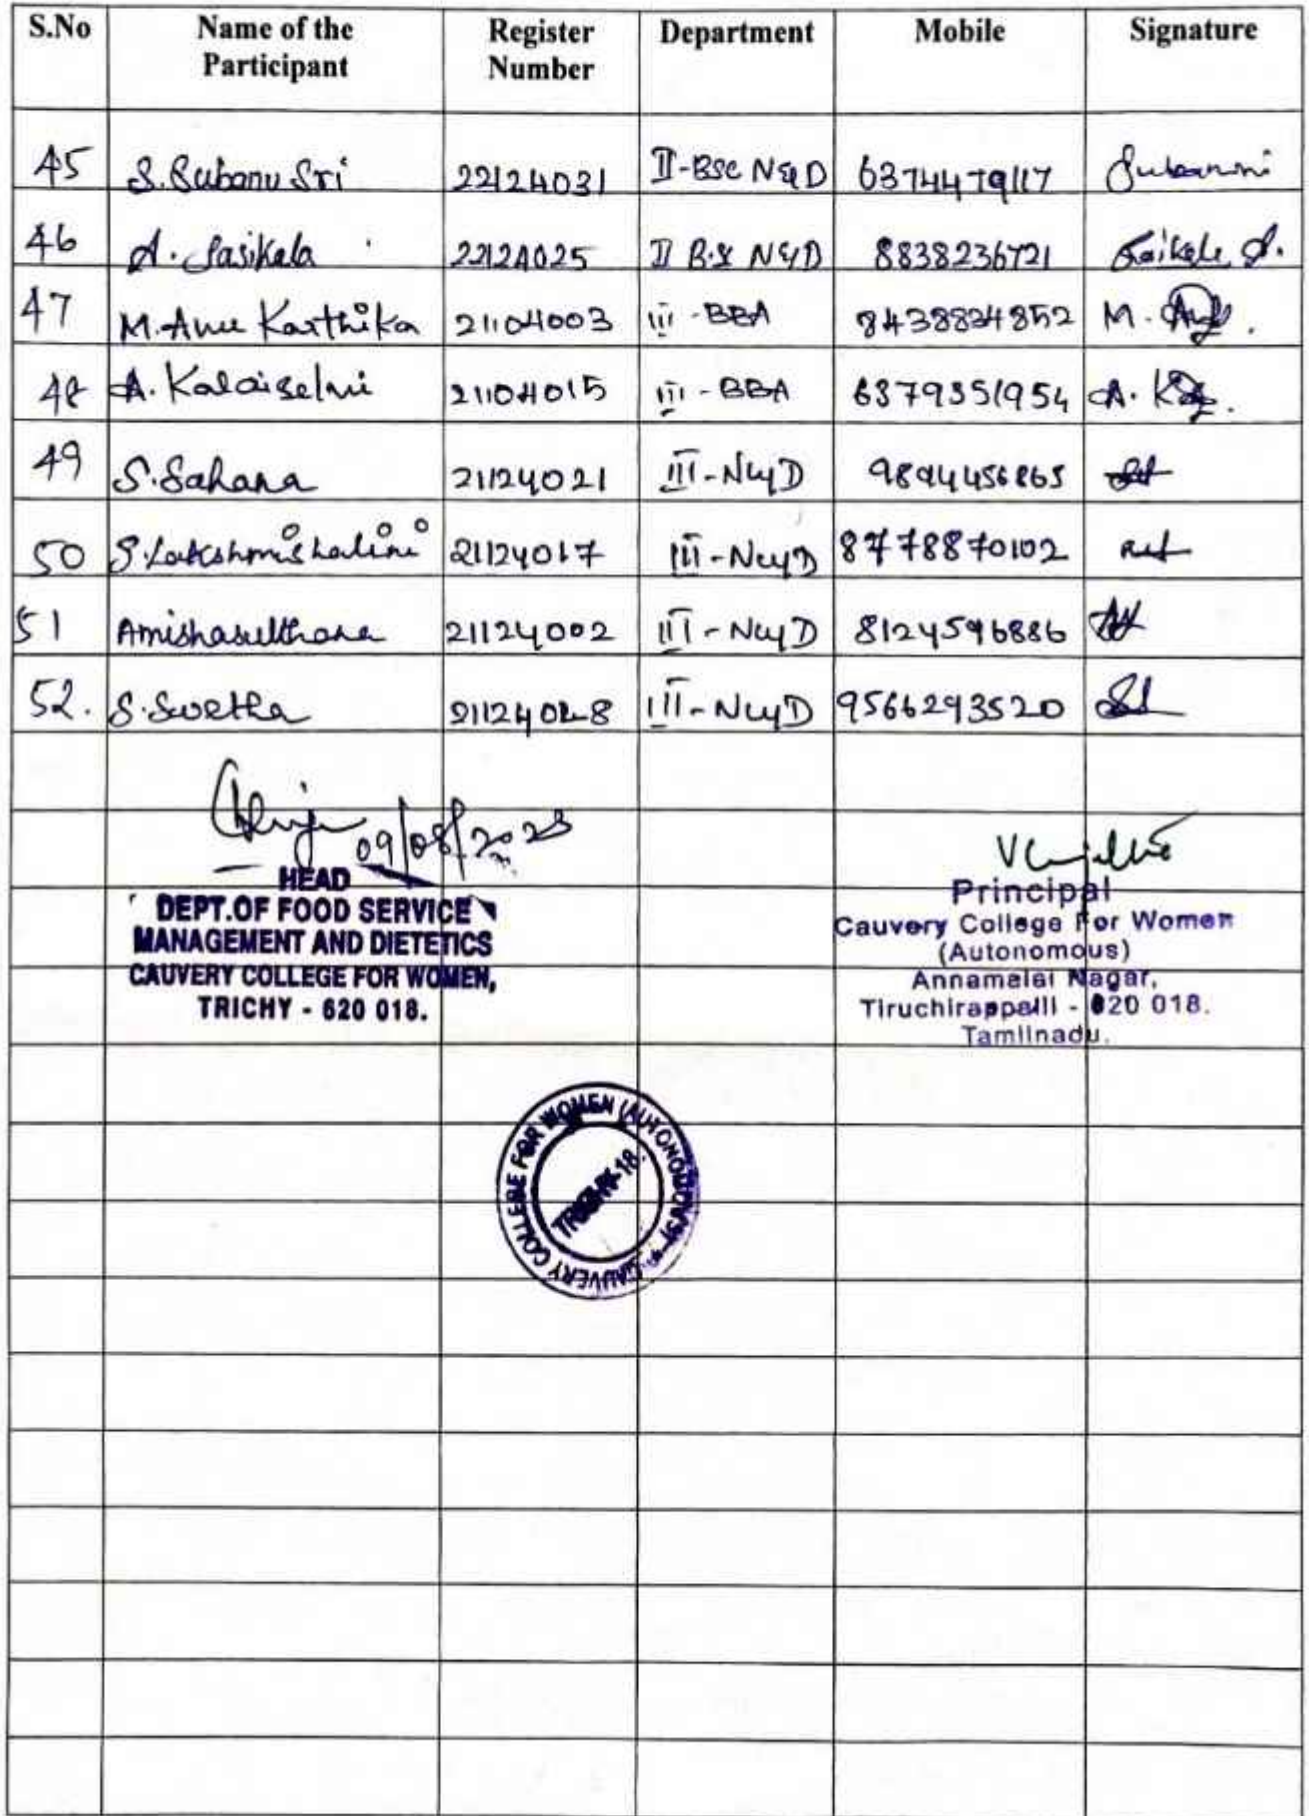 S.No Name of the Participant Register Number Department Mobile Signature
45 S. Subanu Sri 22124031 II-BSC N&D 6374479117
46 A. Sasikala 22124025 II B.Sc N&D 8838236721 Sasikala A.
47 M. Anu Karthika 21104003 III - BBA 8438834852 M.
48 A. Kalaiselvi 21104015 III - BBA 6379351954 A.
49 S. Sahana 21124021 III - N&D 9894456865
50 S. Lakshmishalini 21124017 III - N&D 8778870102
51 Amishasulthana 21124002 III - N&D 8124596886
52. S. Swetha 21124028 III - N&D 9566293520
09/08/2023
HEAD
DEPT.OF FOOD SERVICE
MANAGEMENT AND DIETETICS
CAUVERY COLLEGE FOR WOMEN,
TRICHY - 620 018.
Principal
Cauvery College For Women
(Autonomous)
Annamalai Nagar,
Tiruchirappalli - 620 018.
Tamilnadu.
CAUVERY COLLEGE FOR WOMEN (AUTONOMOUS)